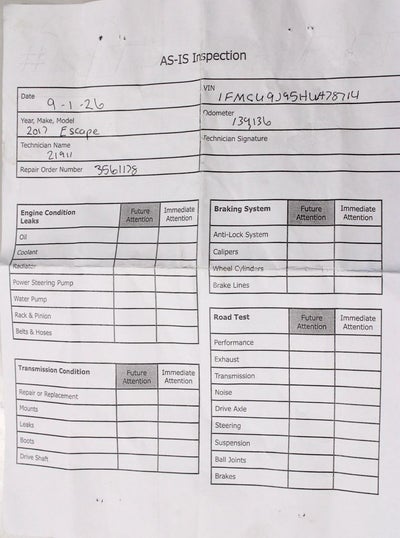 AS-IS Inspection
Date 9-1-26
VIN 1FMCU9J95HUA78714
Year, Make, Model 2017 Escape
Odometer 139,136
Technician Name 21911
Technician Signature
Repair Order Number 3561178
Engine Condition Leaks Future Attention Immediate Attention
Oil
Coolant
Radiator
Power Steering Pump
Water Pump
Rack & Pinion
Belts & Hoses
Transmission Condition Future Attention Immediate Attention
Repair or Replacement
Mounts
Leaks
Boots
Drive Shaft
Braking System Future Attention Immediate Attention
Anti-Lock System
Calipers
Wheel Cylinders
Brake Lines
Road Test Future Attention Immediate Attention
Performance
Exhaust
Transmission
Noise
Drive Axle
Steering
Suspension
Ball Joints
Brakes